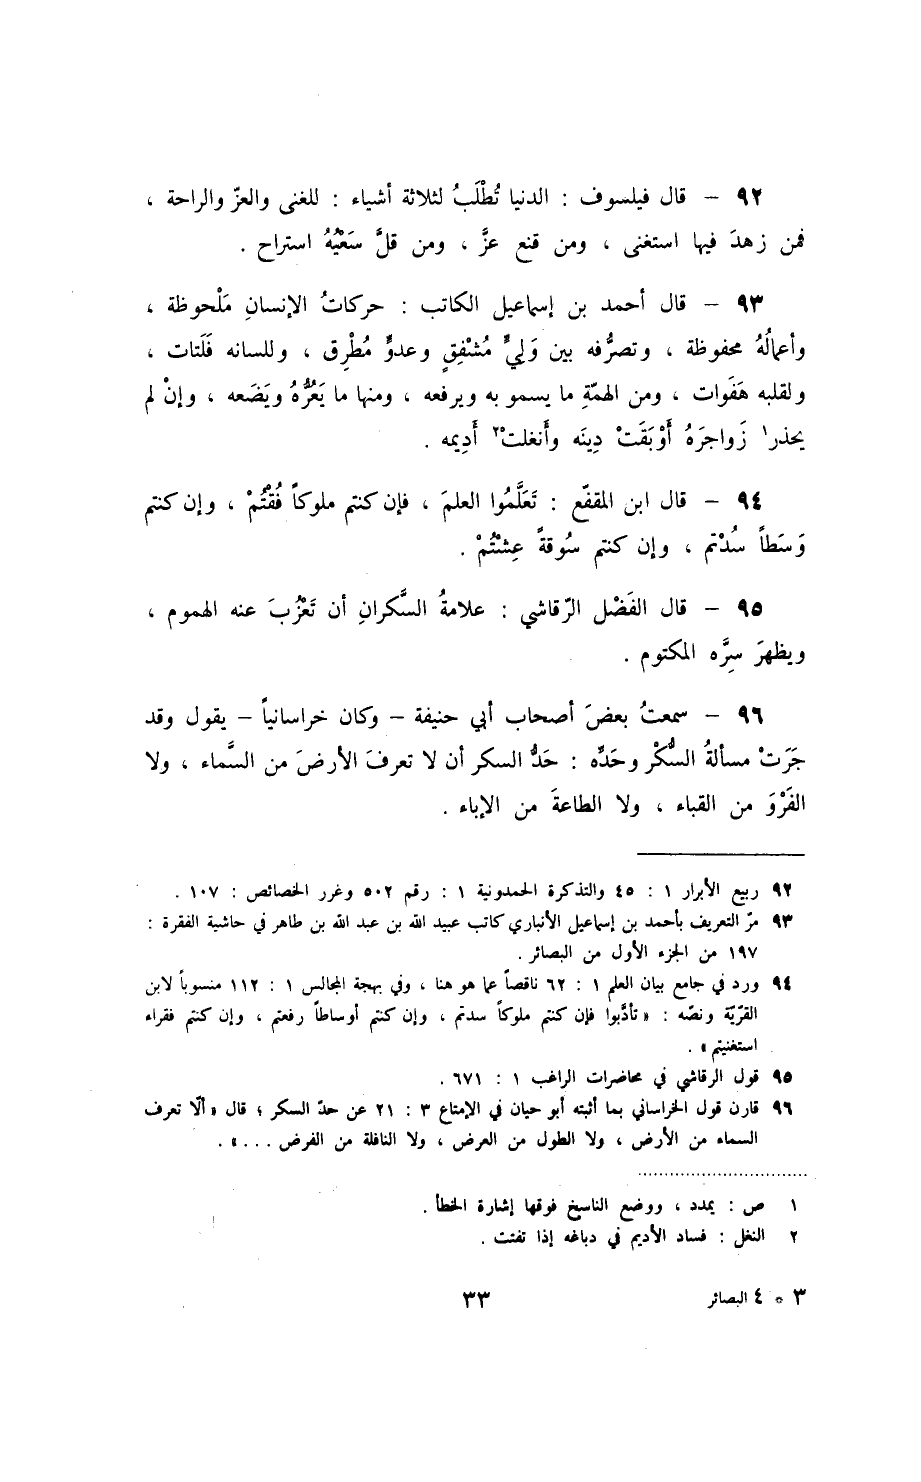 ٩٢ – قال فيلسوف : الدنيا تُطْلَبُ لثلاثة أشياء : للغنى والعزّ والراحة ،
فمن زهدَ فيها استغنى ، ومن قنع عزَّ ، ومن قلَّ سَعْيُهُ استراح .
٩٣ – قال أحمد بن إسماعيل الكاتب : حركاتُ الإنسانِ مَلْحوظة ،
وأعمالُهُ محفوظة ، وتصرُّفه بين وَلِيٍّ مُشْفِقٍ وعدوٍّ مُطْرِق ، وللسانه فَلَتات ،
ولقلبه هَفَوات ، ومن الهمّةِ ما يسمو به ويرفعه ، ومنها ما يَعُرُّهُ ويَضَعه ، وإنْ لم
يحذر١ زَواجرَهُ أَوْبَقَتْ دِينَه وأنغلتْ٢ أَدِيمه .
٩٤ – قال ابن المقفّع : تَعَلَّمُوا العلمَ ، فإن كنتم ملوكاً فُقْتُمْ ، وإن كنتم
وَسَطاً سُدْتم ، وإن كنتم سُوقةً عِشْتُمْ .
٩٥ – قال الفَضْل الرّقاشي : علامةُ السَّكرانِ أن تَعْزُبَ عنه الهموم ،
ويظهرَ سِرَّه المكتوم .
٩٦ – سمعتُ بعضَ أصحاب أبي حنيفة – وكان خراسانياً – يقول وقد
جَرَتْ مسألةُ السُّكْر وحَدِّه : حَدُّ السكر أن لا تعرفَ الأرضَ من السَّماء ، ولا
الفَرْوَ من القباء ، ولا الطاعةَ من الإباء .
٩٢ ربيع الأبرار ١ : ٤٥ والتذكرة الحمدونية ١ : رقم ٥٠٢ وغرر الخصائص : ١٠٧ .
٩٣ مرّ التعريف بأحمد بن إسماعيل الأنباري كاتب عبيد الله بن عبد الله بن طاهر في حاشية الفقرة :
١٩٧ من الجزء الأول من البصائر .
٩٤ ورد في جامع بيان العلم ١ : ٦٢ ناقصاً عما هو هنا ، وفي بهجة المجالس ١ : ١١٢ منسوباً لابن
القرّيّة ونصّه : « تأدَّبوا فإن كنتم ملوكاً سدتم ، وإن كنتم أوساطاً رفعتم ، وإن كنتم فقراء
استغنيتم » .
٩٥ قول الرقاشي في محاضرات الراغب ١ : ٦٧١ .
٩٦ قارن قول الخراساني بما أثبته أبو حيان في الإمتاع ٣ : ٢١ عن حدّ السكر ؛ قال « ألّا تعرف
السماء من الأرض ، ولا الطول من العرض ، ولا النافلة من الفرض ... » .
١ ص : يمدد ، ووضع الناسخ فوقها إشارة الخطأ .
٢ النغل : فساد الأديم في دباغه إذا تفتت .
٣ * ٤ البصائر
٣٣